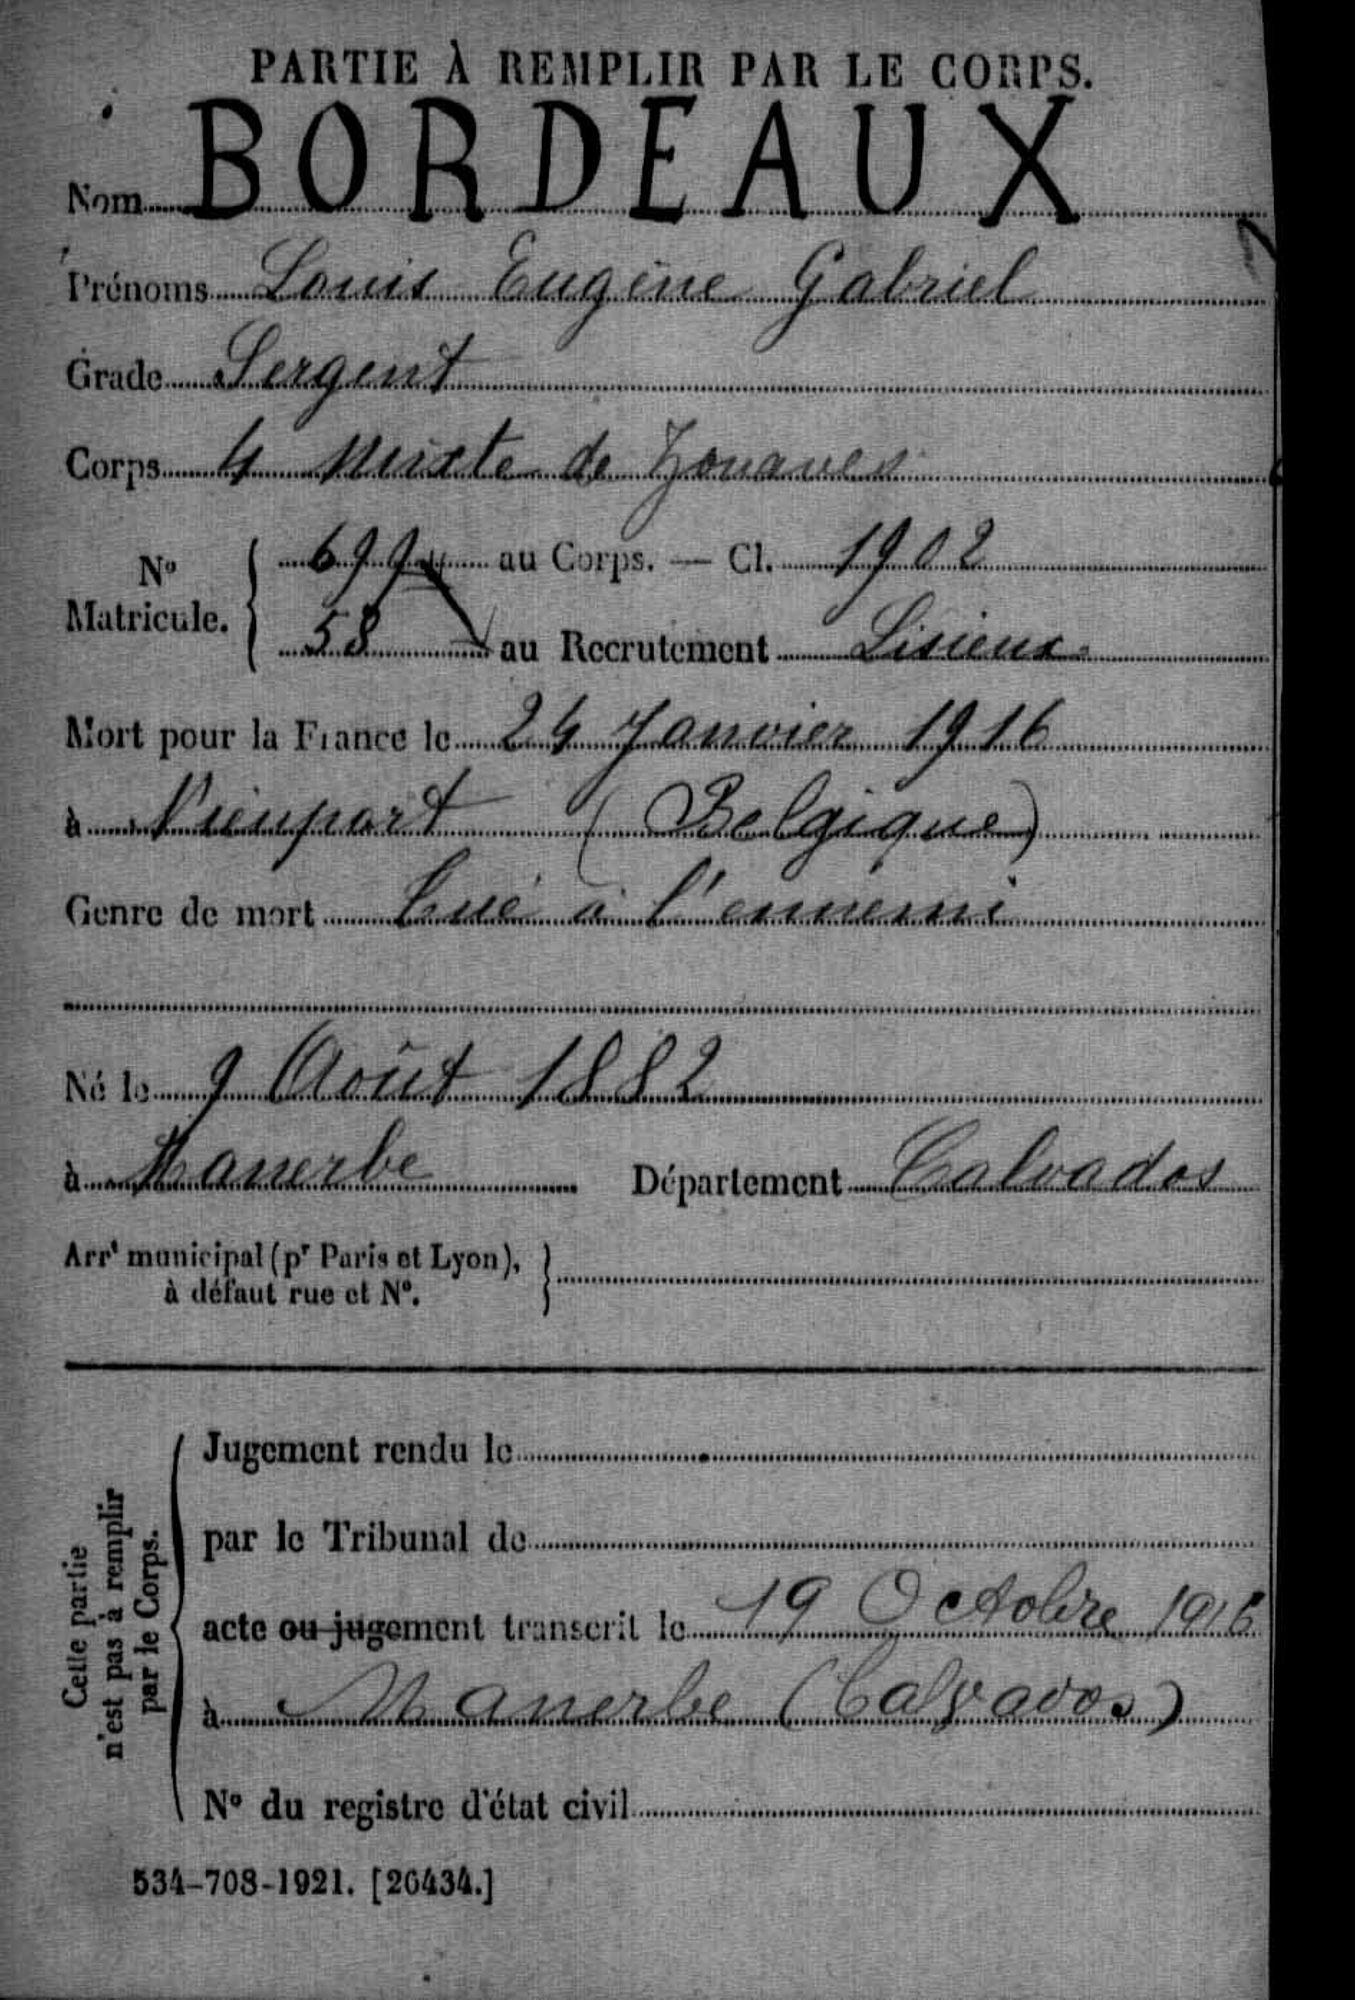 PARTIE À REMPLIR PAR LE CORPS.
Nom BORDEAUX
Prénoms Louis Eugène Gabriel
Grade Sergent
Corps 4 Mixte de Zouaves
Nº Matricule. { 699 au Corps. — Cl. 1902
58 au Recrutement Lisieux
Mort pour la France le 24 Janvier 1916
à Nieuport (Belgique)
Genre de mort Tué à l'ennemi
Né le 9 Août 1882
à Manerbe Département Calvados
Arrt municipal (pr Paris et Lyon),
à défaut rue et Nº.
Cette partie
n'est pas à remplir
par le Corps.
Jugement rendu le
par le Tribunal de
acte ou jugement transcrit le 19 Octobre 1916
à Manerbe (Calvados)
Nº du registre d'état civil
534-708-1921. [26434.]